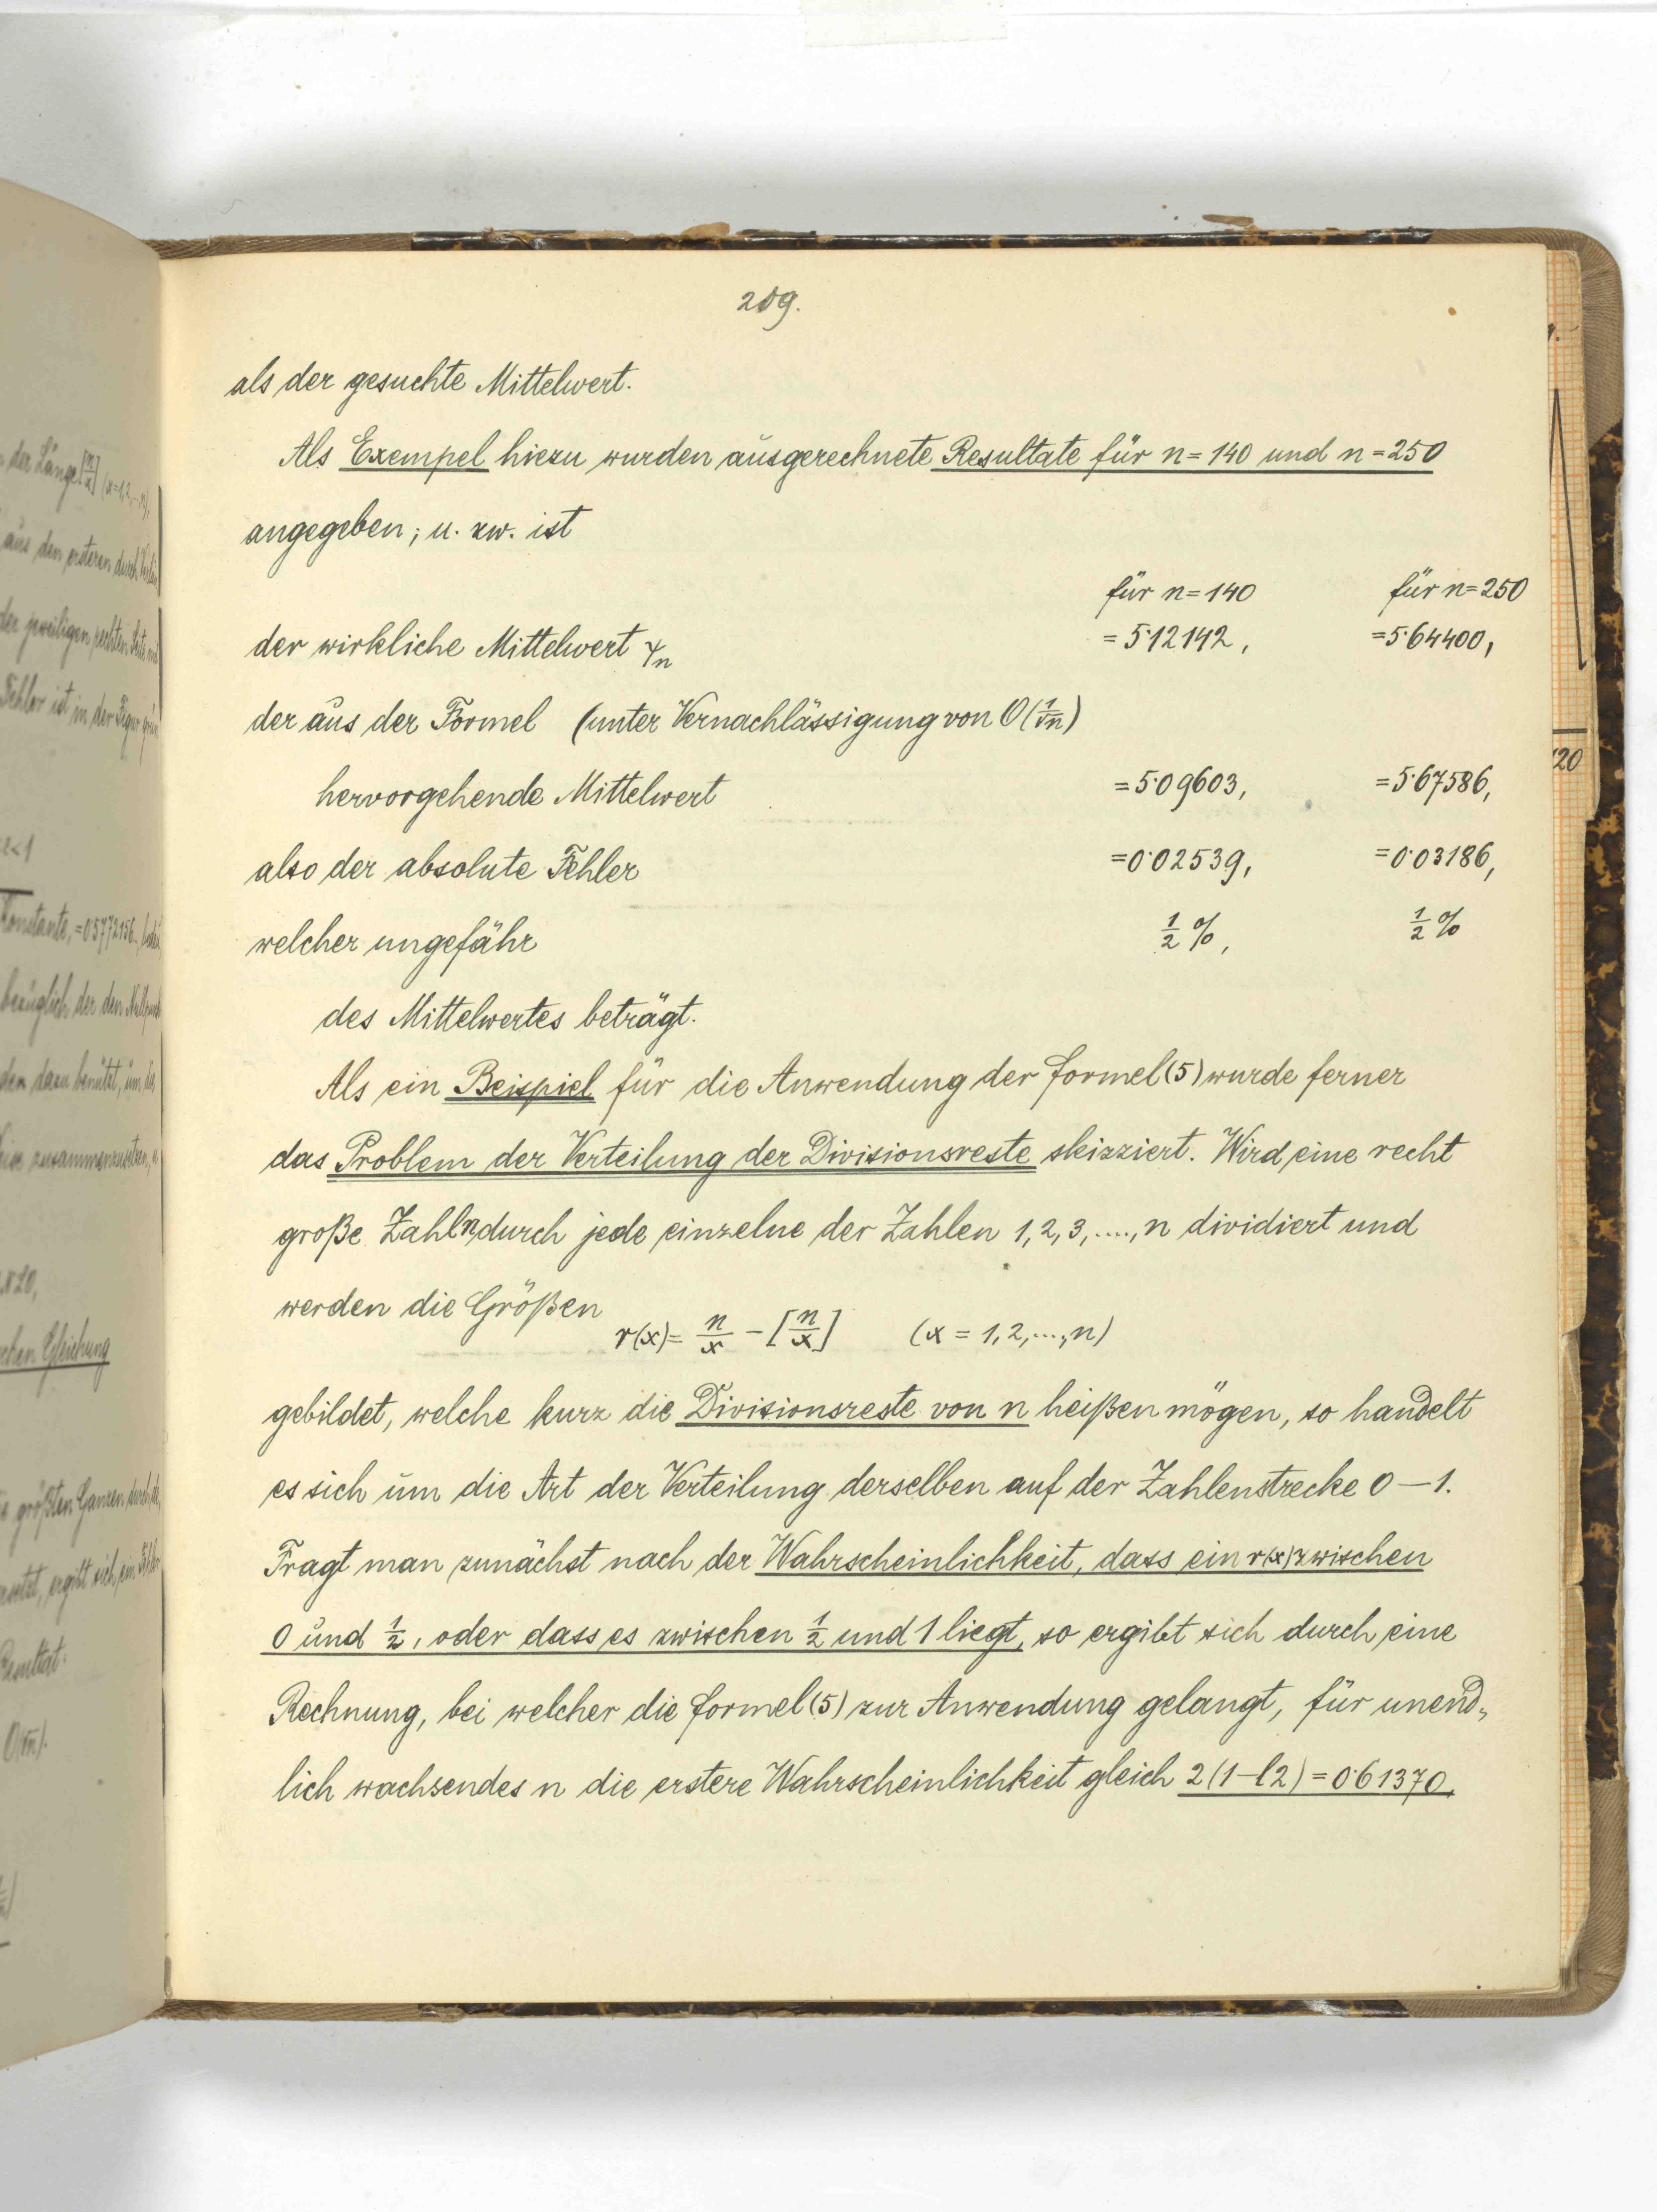 209.
als der gesuchte Mittelwert.
Als Exempel hiezu wurden ausgerechnete Resultate für n = 140 und n = 250
angegeben; u. zw. ist
für n = 140 für n = 250
der wirkliche Mittelwert = 5·12142, = 5·64400,
der aus der Formel (unter Vernachlässigung von O(1/√n)
hervorgehende Mittelwert = 5·09603, = 5·67586,
also der absolute Fehler = 0·02539, = 0·03186,
welcher ungefähr ½ %, ½ %
des Mittelwertes beträgt.
Als ein Beispiel für die Anwendung der Formel (5) wurde ferner
das Problem der Verteilung der Divisionsreste skizziert. Wird eine recht
große Zahl n durch jede einzelne der Zahlen 1, 2, 3, ...., n dividiert und
werden die Größen
r(x) = n/x − [n/x] (x = 1, 2, ..., n)
gebildet, welche kurz die Divisionsreste von n heißen mögen, so handelt
es sich um die Art der Verteilung derselben auf der Zahlenstrecke 0 — 1.
Fragt man zunächst nach der Wahrscheinlichkeit, dass ein r(x) zwischen
0 und ½, oder dass es zwischen ½ und 1 liegt, so ergibt sich durch eine
Rechnung, bei welcher die Formel (5) zur Anwendung gelangt, für unend-
lich wachsendes n die erstere Wahrscheinlichkeit gleich 2(1−l2) = 0·61370,
120